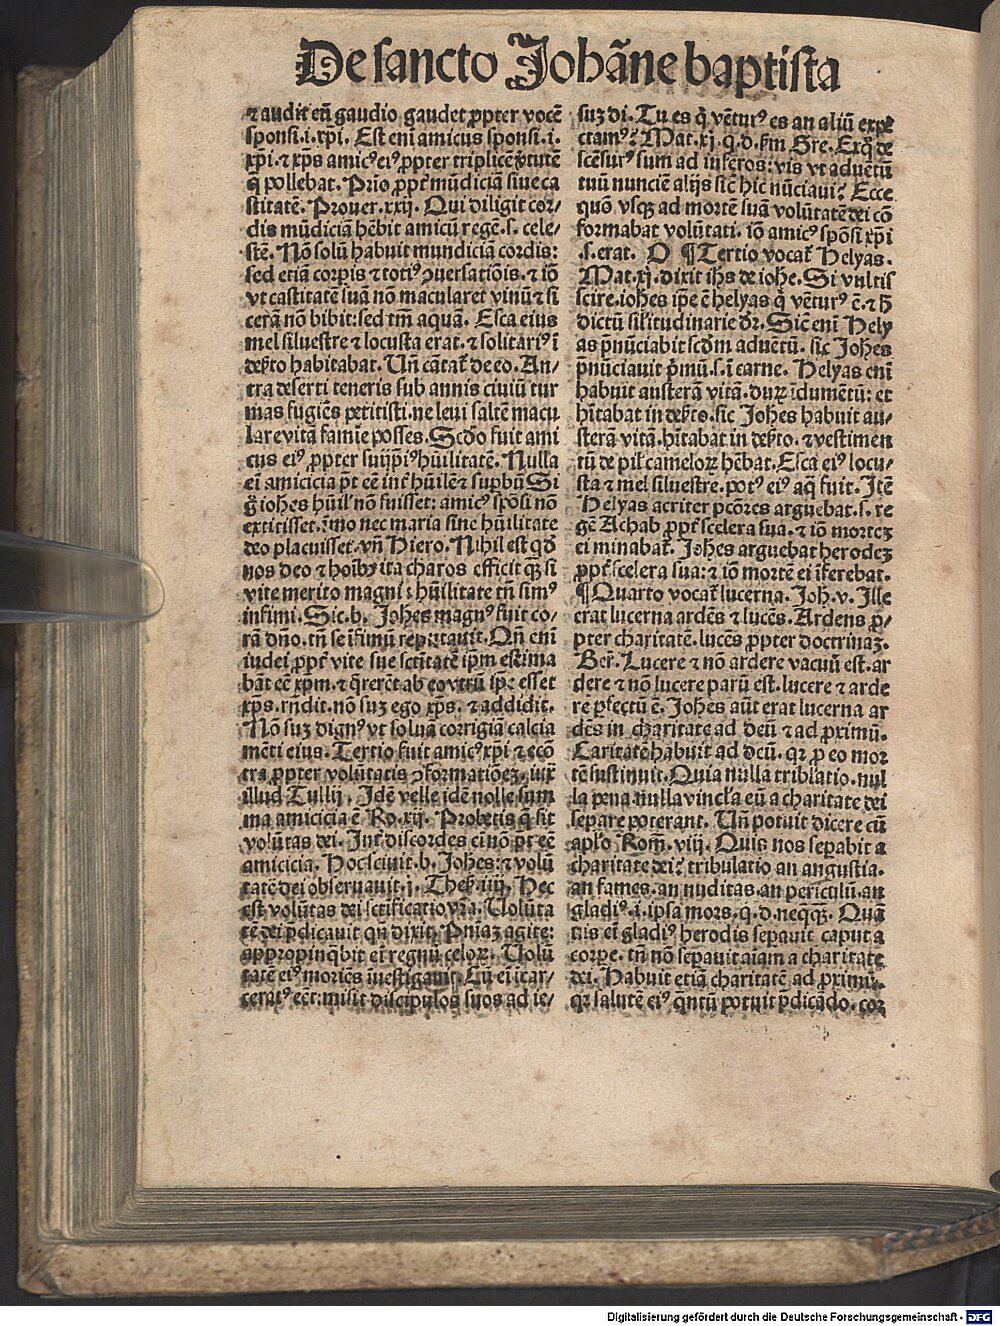 De sancto Johãne baptista
⁊ audit eũ gaudio gaudet ꝓpter vocẽ
sponsi.i.xpi. Est eni amicus sponsi.i.
xpi.⁊ xp̃s amicꝰ eiꝰ ꝓpter triplicẽ v̾tutẽ
q̃ pollebat. Prio ꝓpt̃ mũdiciã siue ca
stitatẽ. Prouer.xxij. Qui diligit cor/
dis mũdiciã hẽbit amicũ regẽ.s. cele/
stẽ. Nõ solũ habuit mundiciã cordis:
sed etiã corꝑis ⁊ totiꝰ ꝯuersatiõis.⁊ iõ
vt castitatẽ suã nõ macularet vinũ ⁊ si
cerã nõ bibit:sed tm̃ aquã. Esca eius
mel siluestre ⁊ locusta erat.⁊ solitariꝰ ĩ
deẜto habitabat. Uñ cãtat̃ de eo. An/
tra deserti teneris sub annis ciuiũ tur
mas fugiẽs petitisti.ne leui saltẽ macu
lare vitã famie posses. Scdo fuit ami
cus eiꝰ ꝓpter suijp̃iꝰ hũilitatẽ. Nulla
ei amicicia p̃t eẽ int̃ hũilẽ ⁊ supbũ Si
g̃ iohes hũil̃ nõ fuisset: amicꝰ spõsi nõ
extitisset.ĩmo nec maria sine hũilitate
deo placuisset.vñ Hiero. Nihil est qd̃
nos deo ⁊ hoĩbꝫ ita charos efficit qꝫ si
vite merito magni ⁊ hũilitate tñ simꝰ
infimi. Sic.b. Johes magnꝰ fuit co/
rã dño.tñ se ĩfimũ reputauit. Qñ eni
iudei ꝓpt̃ vite sue sctitatẽ ip̃m estima
bãt eẽ xp̃m.⁊ q̃rerẽt ab eo vtrũ ip̃e esset
xp̃s.rñdit.nõ suꝫ ego xp̃s. ⁊ addidit.
Nõ suꝫ dignꝰ vt soluã corrigiã calcia
mẽti eius. Tertio fuit amicꝰ xp̃i ⁊ ecõ
tra ꝓpter volũtatis ꝯformatiõeꝫ.iux̃
illud Tullij. Idẽ velle idẽ nolle sum
ma amicicia ẽ Ro.xij. Probetis q̃ sit
volũtas dei. Int̃ discordes ei nõ p̃t eẽ
amicicia. Hoc sciuit.b. Johes:⁊ volũ
tatẽ dei obseruauit.j. Theẜ.iiij. Hec
est volũtas dei sctificatio vr̃a. Uolũta
tẽ dei p̃dicauit qñ dixit. Pñiaꝫ agite:
appropinq̃bit ei regnũ celoꝝ. Uolũ
tatẽ eiꝰ moriẽs ĩuestigauit. Cũ ei icar/
ceratꝰ eẽt:misit discipulos suos ad ie/
suꝫ di. Tu es q̃ vẽturꝰ es an aliũ expe
ctamꝰ? Mat.xj.q.d.ẜm Gre. Exq̃ de
scẽsurꝰ sum ad inferos:vis vt aduẽtũ
tuũ nunciẽ alijs sic̃ hic nũciaui? Ecce
quõ vsqꝫ ad mortẽ suã volũtatẽ dei cõ
formabat volũtati. iõ amicꝰ spõsi xp̃i
.s.erat. O ¶Tertio vocat̃ Helyas.
Mat.xj.dixit ih̃s de iohe. Si vultis
scire.iohes ip̃e ẽ helyas q̃ vẽturꝰ ẽ.⁊ h̃
dictũ sil̃itudinarie dr̃. Sic̃ eni Hely
as p̃nũciabit scd̃m aduẽtũ. sic Johes
p̃nũciauit p̃mũ.s.ĩ carne. Helyas eni
habuit austerã vitã.duꝝ idumẽtũ: et
hĩtabat in deẜto.sic Johes habuit au/
sterã vitã.hĩtabat in deẜto.⁊ vestimen
tũ de pil̃ cameloꝝ hẽbat. Esca eiꝰ locu/
sta ⁊ mel siluestre.potꝰ eiꝰ aq̃ fuit. Itẽ
Helyas acriter pcõres arguebat.s. re
gẽ Achab ꝓpt̃ scelera sua.⁊ iõ morteꝫ
ei minabat̃. Johes arguebat herodeꝫ
ꝓpt̃ scelera sua:⁊ iõ mortẽ ei ĩferebat.
¶Quarto vocat̃ lucerna. Joh.v. Ille
erat lucerna ardẽs ⁊ lucẽs. Ardens ꝓ/
pter charitatẽ.lucẽs ꝓpter doctrinaꝫ.
Ber̃. Lucere ⁊ nõ ardere vacuũ est.ar
dere ⁊ nõ lucere parũ est.lucere ⁊ arde
re ꝑfectũ ẽ. Johes aũt erat lucerna ar
dẽs in charitate ad deũ ⁊ ad ꝓximũ.
Caritatẽ habuit ad deũ. qꝛ ꝓ eo mor
tẽ sustinuit. Quia nulla tribl̃atio.nul
la pena.nulla vincl̃a eũ a charitate dei
seꝑare poterant. Uñ potuit dicere cũ
apl̃o Rom̃.viij. Quis nos seꝑabit a
charitate dei? tribulatio an angustia.
an fames.an nuditas.an periculũ.an
gladiꝰ.i.ipsa mors.q.d.neqꝫ. Quã
uis ei gladiꝰ herodis seꝑauit caput a
corpe. tñ nõ seꝑauit aiam a charitate
dei. Habuit etiã charitatẽ ad ꝓximũ.
qꝛ salutẽ eiꝰ q̃ntũ potuit p̃dicãdo. cor
Digitalisierung gefördert durch die Deutsche Forschungsgemeinschaft - DFG